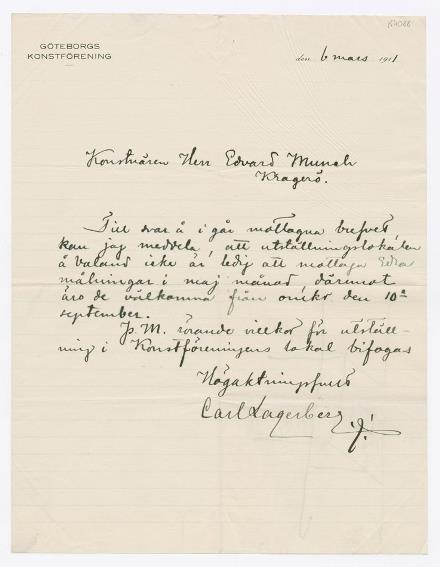 GÖTEBORGS
KONSTFÖRENING
den 6 mars 1911
Konstnären Herr Edvard Munch
Kragerö.
Till svar å i går mottagna brefvet
kan jag meddela, att utställningslokalen
å Valand icke är ledig att mottaga Edra
målningar i maj månad, däremot
äro de välkomna från omkr den 10de
september.
P.M. rörande villkor för utställ-
ning i Konstföreningens lokal bifogas
Högaktningsfullt
Carl Lagerberg